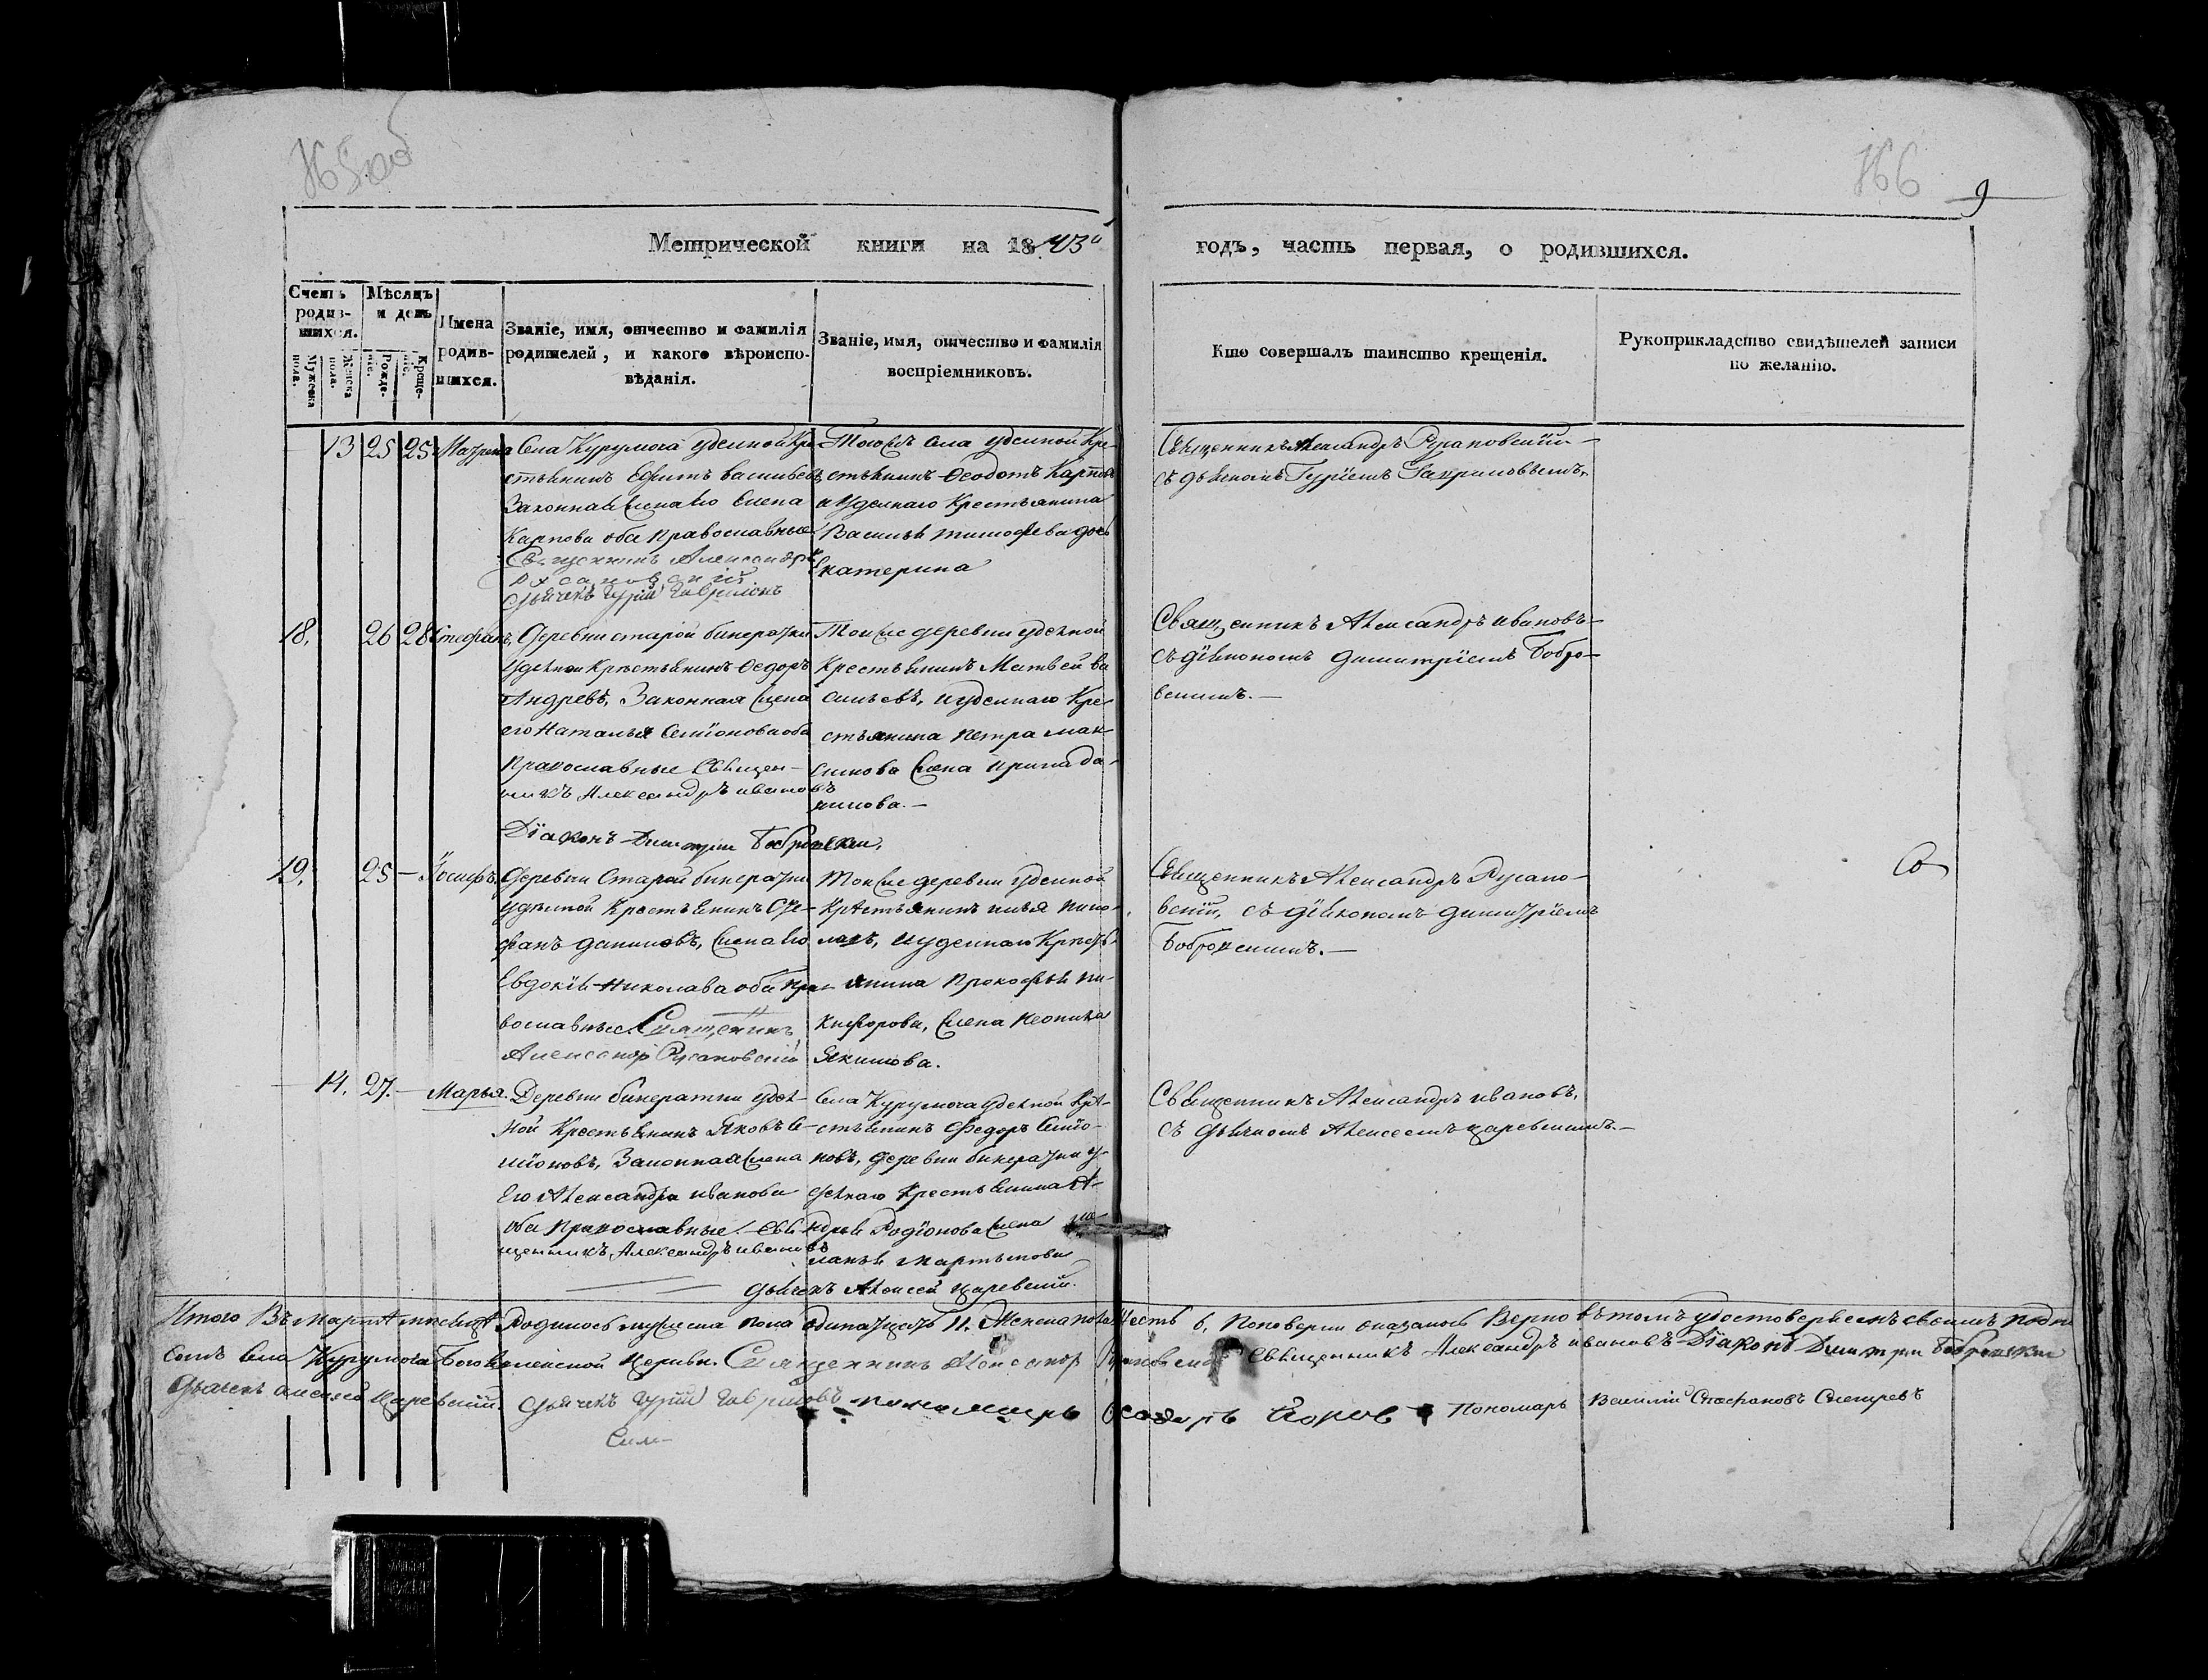 165об
166
9
Метрической книги на 1843й
годъ, часть первая, о родившихся.
Счетъ родив-
шихся.
Мужеска пола.
Женска пола.
Мѣсяцъ и день
Рожде-
нія.
Креще-
нія.
Имена
родив-
шихся.
Званіе, имя, отчество и фамилія
родителей, и какого вѣроиспо-
вѣданія.
Званіе, имя, отчество и фамилія
воспріемниковъ.
Кто совершалъ таинство крещенія.
Рукоприкладство свидѣтелей записи
по желанію.
13 25 25 Матрена
Села Курумоча удельной кре
стьянинъ Ефимъ васильевъ,
Законная жена его Елена
Карпова оба православные
Священникъ Александръ
Русановскій
Дьячекъ Гурій Гавриловъ
Тогожъ села удельной Кре-
стьянинъ Феодотъ Карповъ
и Удельнаго Крестьянина
Василья тимофева дочь
Екатерина
Священникъ Александръ Русановскій
съ дьячкомъ Гуріемъ Гавриловымъ.
18. 26 28 Стефанъ,
Деревни старой бинарадки
Удельной Крестьянинъ Федоръ
Андревъ, Законная жена
его Наталья Семіонова оба
Православные Священ-
никъ Александръ ивановъ
Діаконъ Димитрій Бобровскій.
Тойже деревни удельной
Крестьянинъ Матвей ва
сильевъ, и удельнаго Кре
стьянина Петра мак
симова жена Ирина да-
нилова.-
Священникъ Александръ ивановъ-
съ діякономъ димитріемъ Бобро-
вскимъ.-
19. 25 - Іосифъ.
Деревни Старой бинарадки
удельной Крестьянинъ Сте-
фанъ даниловъ, жена его
Евдокія Николава оба Пра-
вославные. Священникъ
Александръ Русановскій
Тойже деревни удельной
Крестьянинъ илья Нико-
лаевъ, и удельнаго Кресть-
янина Прокофья Ни-
кифорова, жена Неонила
Якимова.
Священникъ Александръ Русано-
вскій, съ діякономъ димитріемъ
Бобровскимъ.-
14. 27. - Марья.
Деревни бинарадки удель-
ной Крестьянинъ Яковъ Се-
міоновъ, Законная жена
Его Александра иванова
оба Православные. Свя
щенникъ Александръ ивановъ
Дьячекъ Алексей Царевскій.
Села Курумоча удельной кре-
стьянинъ Федоръ Семіо-
новъ, деревни бинарадки у-
дельнаго Крестьянина А-
ндрея Родіонова жена
Мартынова
Священникъ Александръ ивановъ,
съ дьячкомъ Алексеемъ царевскимъ.-
Итого Въ марте месяце Родилось мужеска пола одинатцать 11. Женска пола Шесть 6, Поповерки оказалось Верно вътомъ удостоверяемъ своимъ подпи
сомъ Села Курумоча Богоявленской Церкви. Священникъ Александръ Русановскій Священникъ Александръ ивановъ Діаконъ Димитрій Бобровскій
Дьячекъ алексей Царевскій. Дьячекъ Гурій Гавриловъ пономарь Пономарь Василій Стефановъ